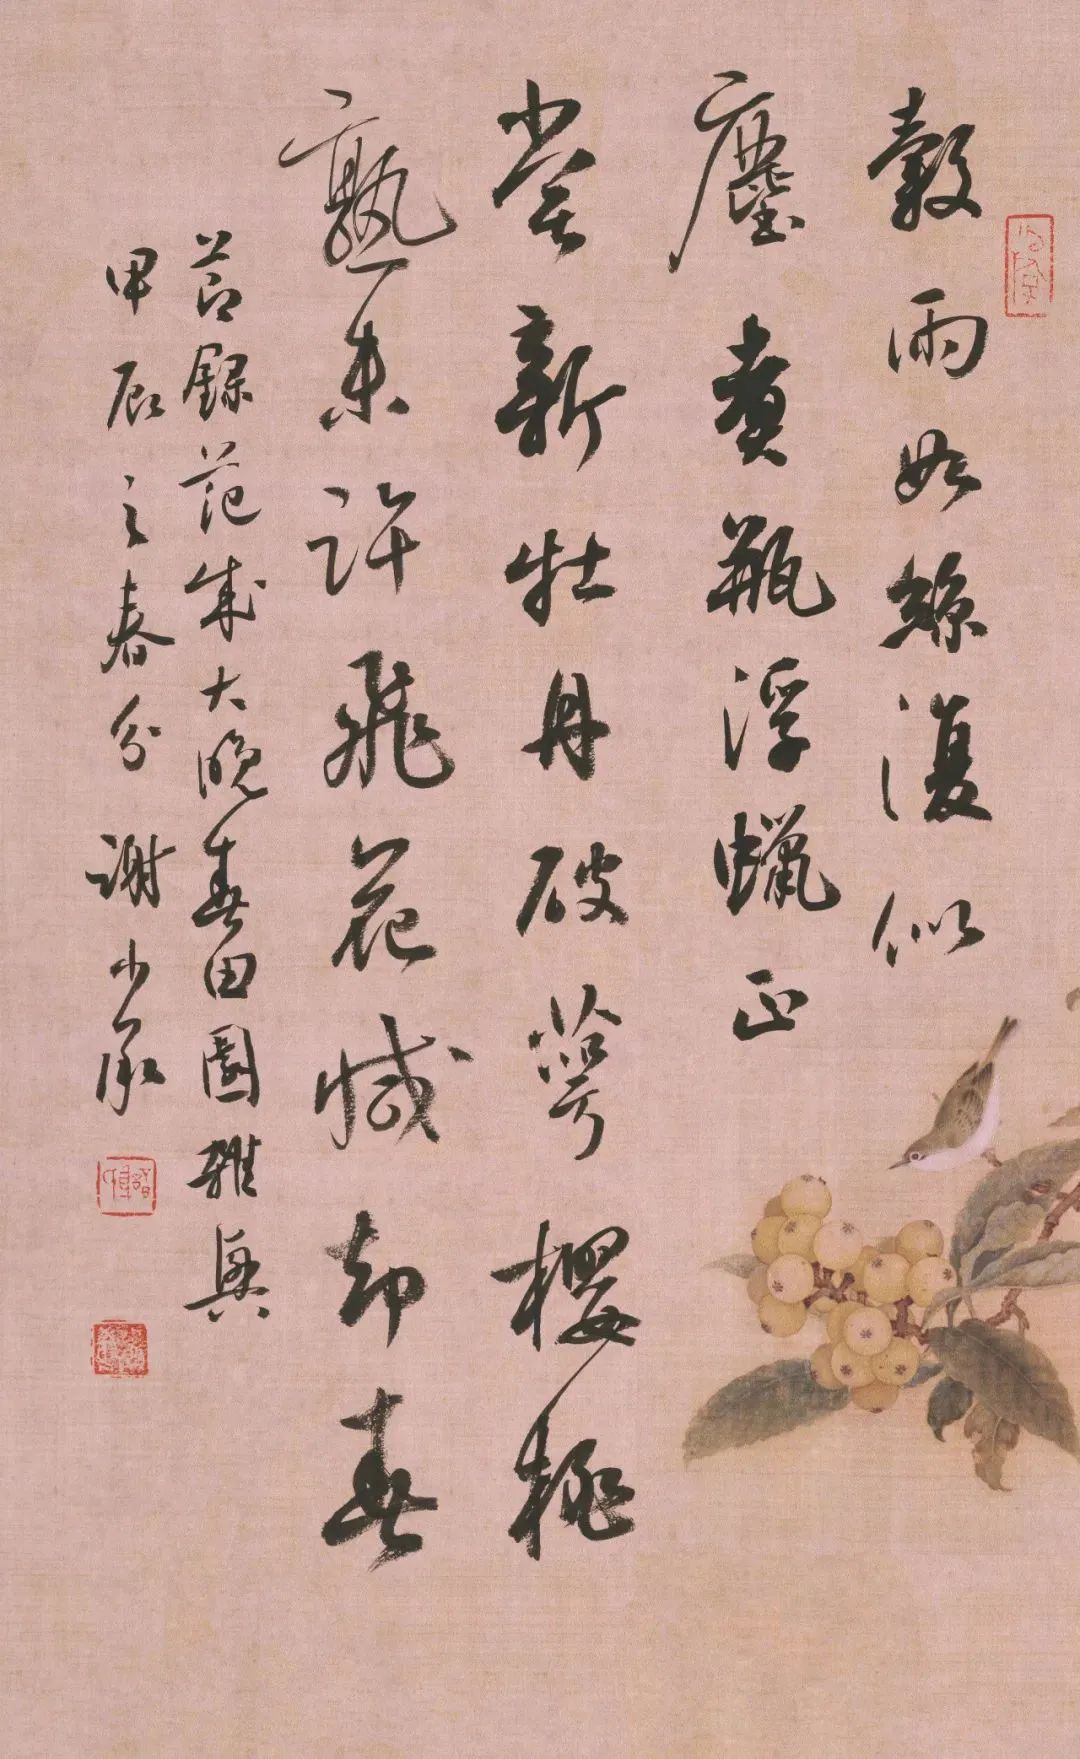 穀雨如絲復似
塵煮瓶浮蠟正
嘗新牡丹破萼櫻桃
熟未許飛花減却春
節錄范成大晚春田園雜興
甲辰之春分 谢少承